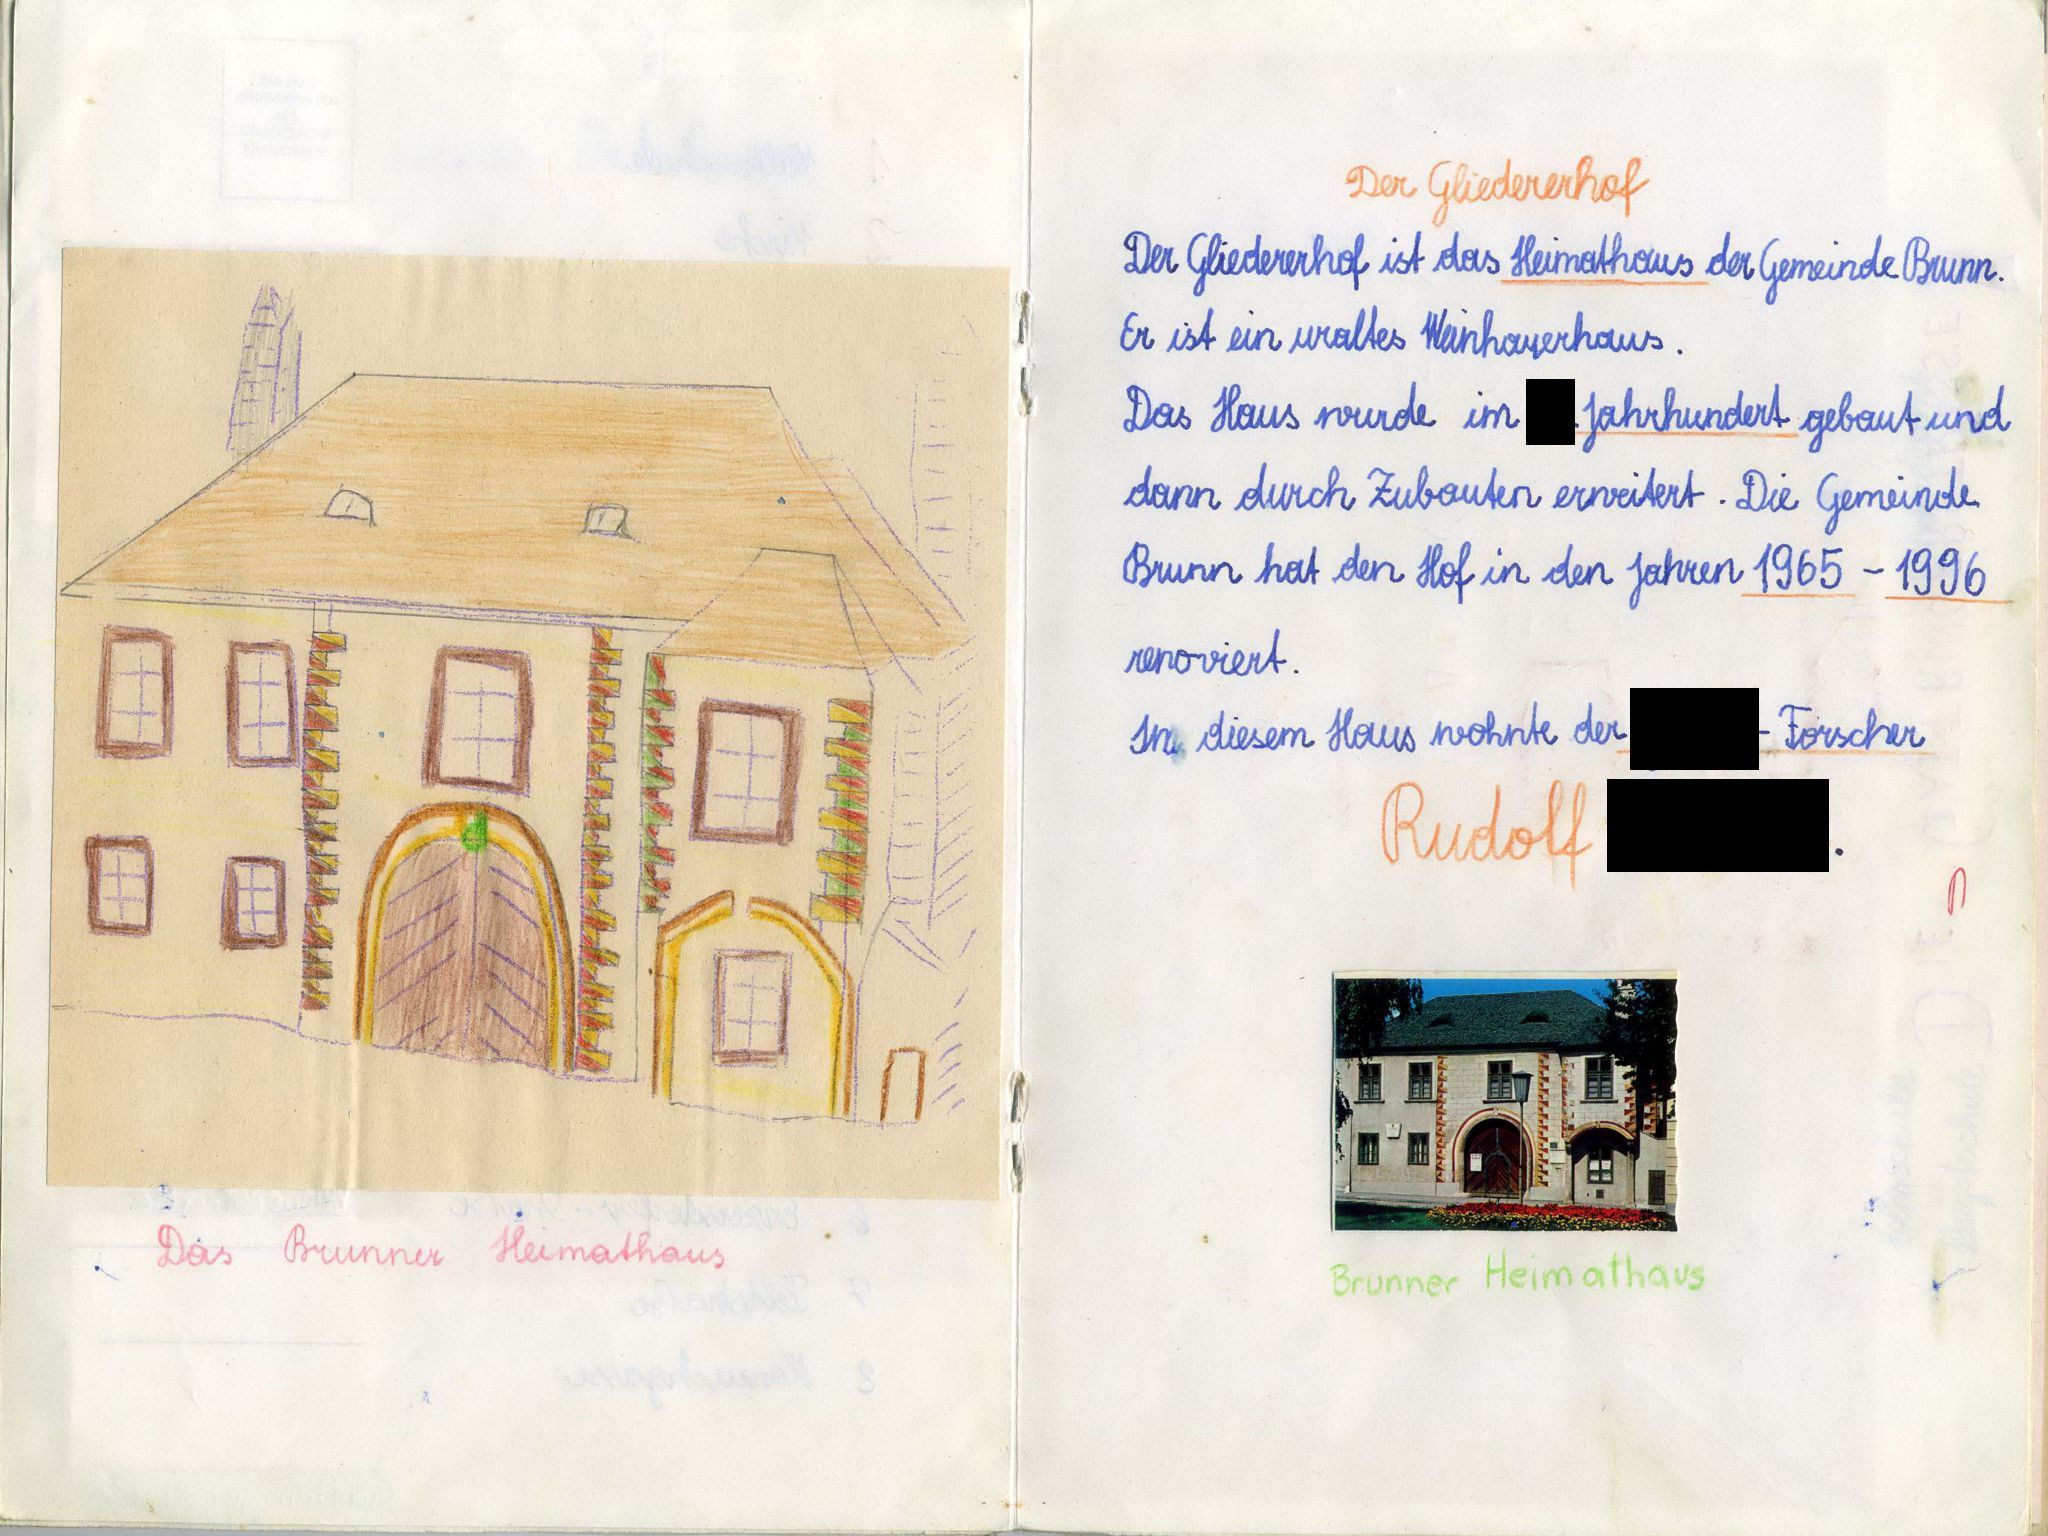 Das Brunner Heimathaus
Der Gliedererhof
Der Gliedererhof ist das Heimathaus der Gemeinde Brunn.
Er ist ein uraltes Weinhauerhaus.
Das Haus wurde im . Jahrhundert gebaut und
dann durch Zubauten erweitert. Die Gemeinde
Brunn hat den Hof in den Jahren 1965 - 1996
renoviert.
In diesem Haus wohnte der - Forscher
Rudolf .
Brunner Heimathaus